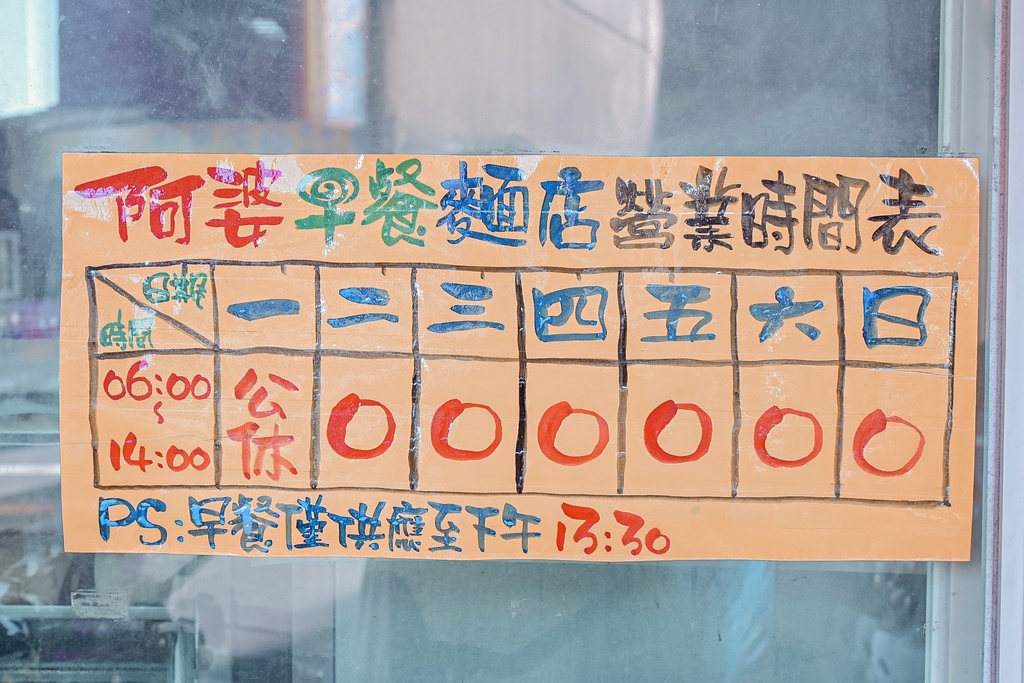 阿婆早餐麵店營業時間表
日期 一 二 三 四 五 六 日
時間
06:00 ~ 14:00 公休 〇 〇 〇 〇 〇 〇
PS:早餐僅供應至下午 13:30